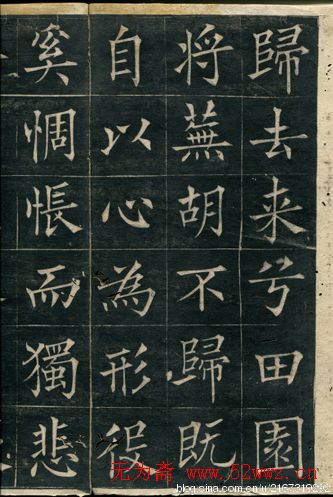 歸去来兮田園
将蕪胡不歸既
自以心為形役
奚惆悵而獨悲
无为斋 www.52wwz.cn